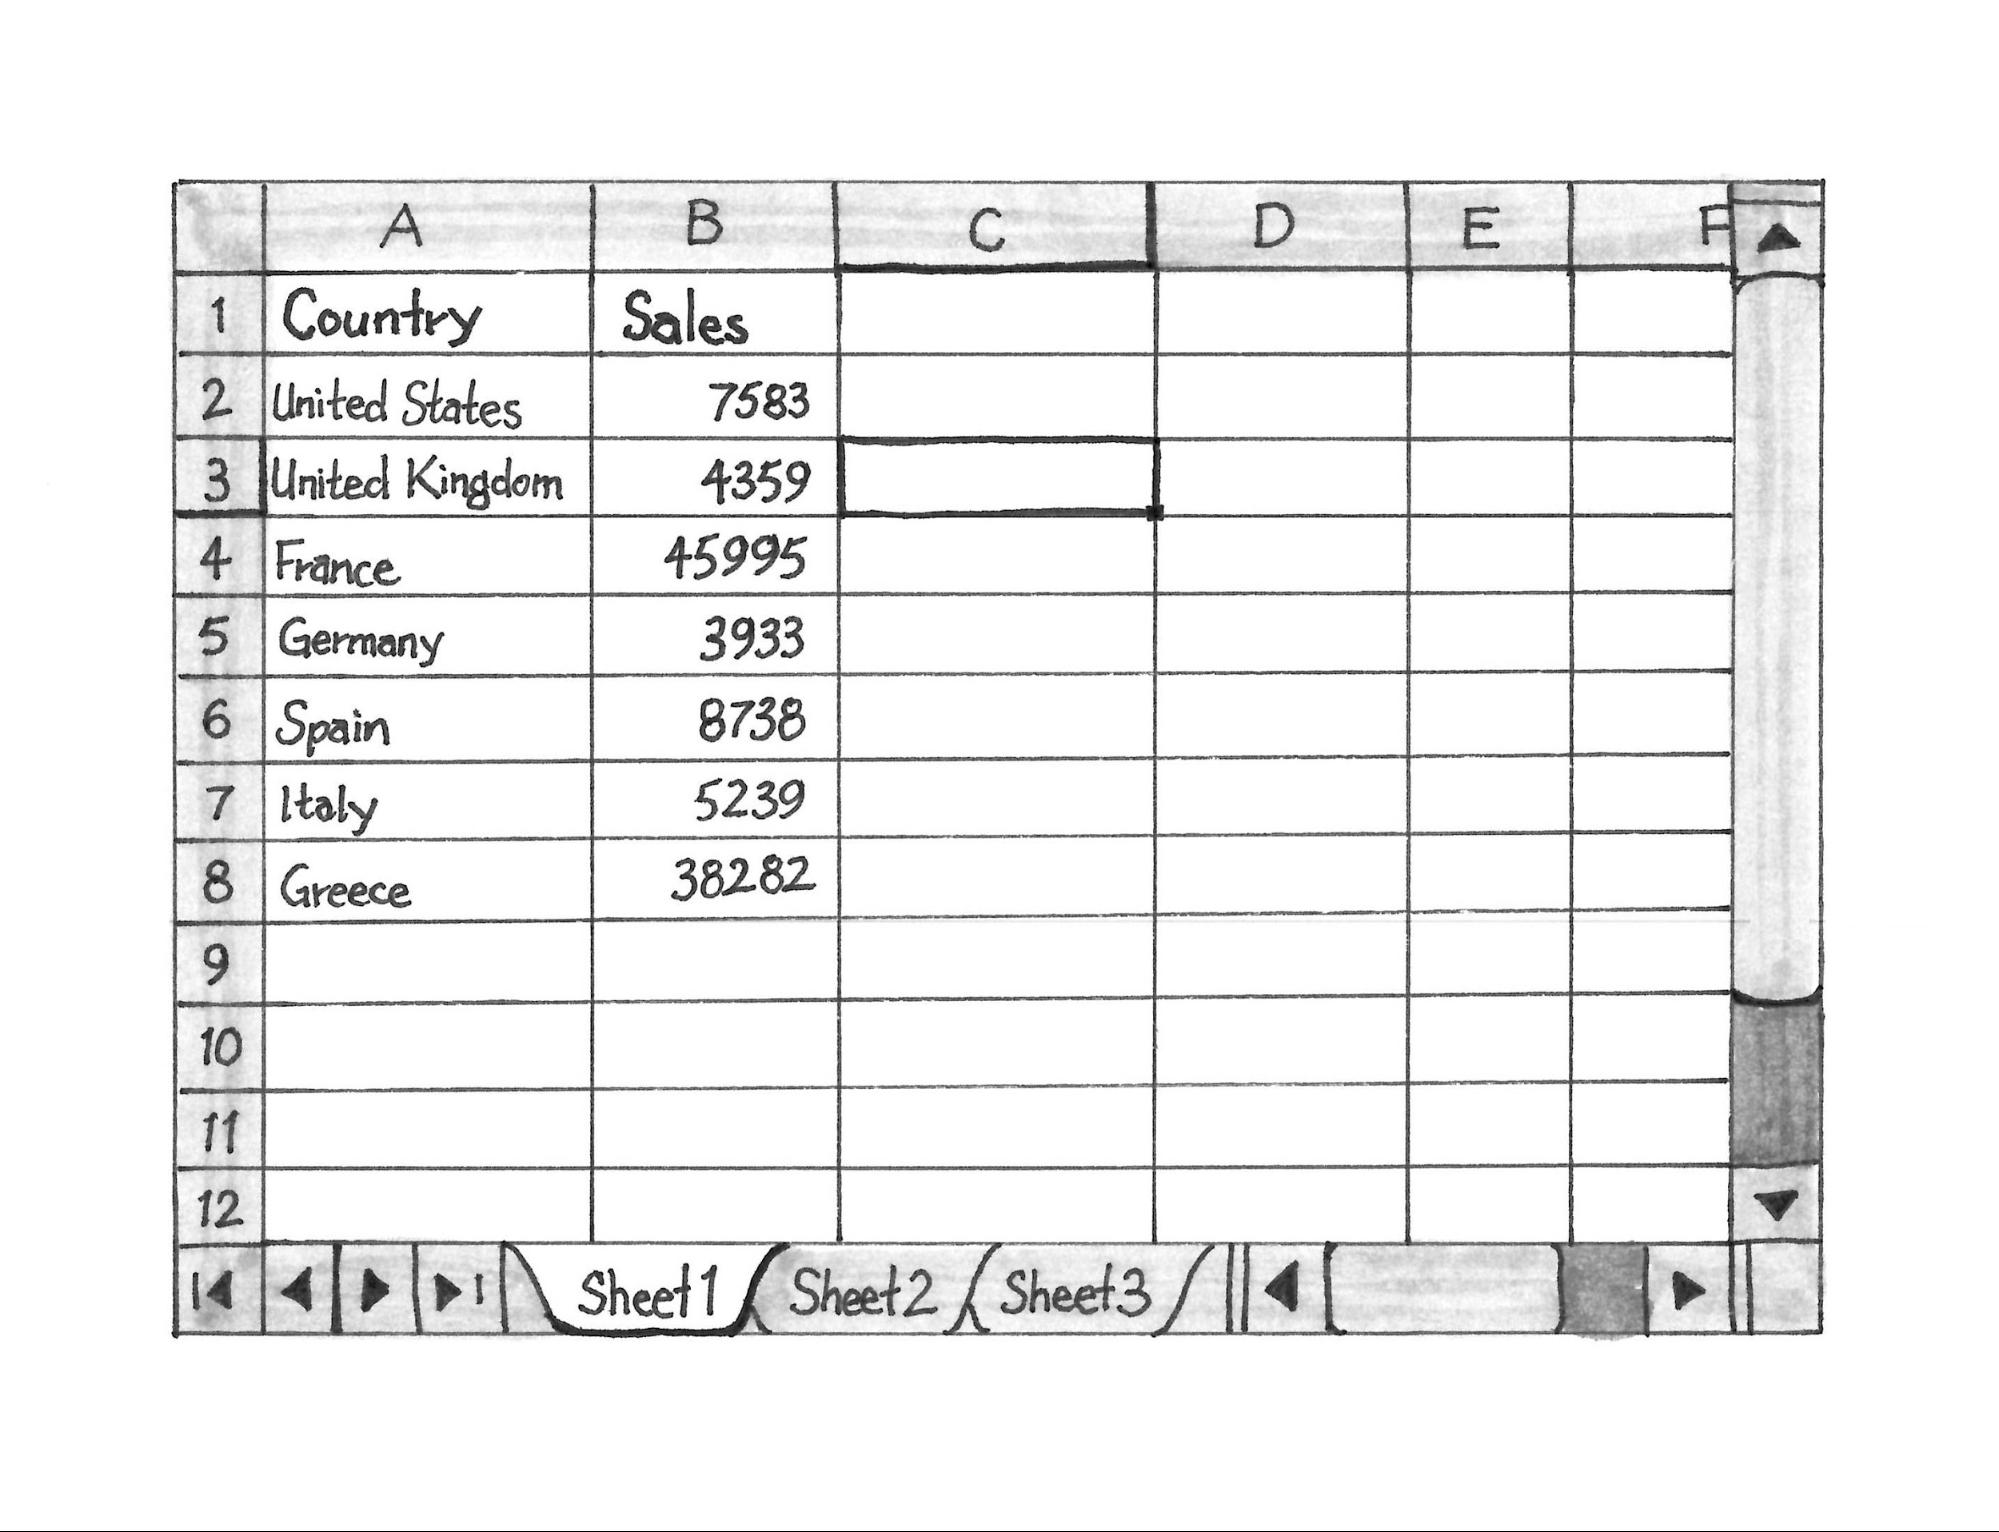 A B C D E F
1 Country Sales
2 United States 7583
3 United Kingdom 4359
4 France 45995
5 Germany 3933
6 Spain 8738
7 Italy 5239
8 Greece 38282
9
10
11
12
Sheet1 Sheet2 Sheet3